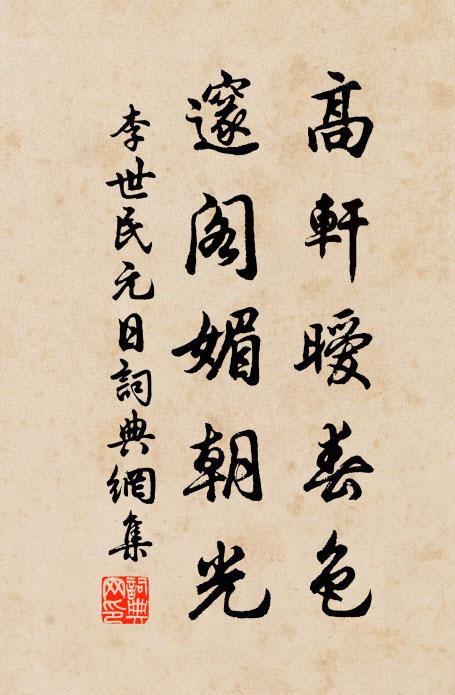 高軒曖春色
邃閣媚朝光
李世民元日詞典網集
詞典
网印